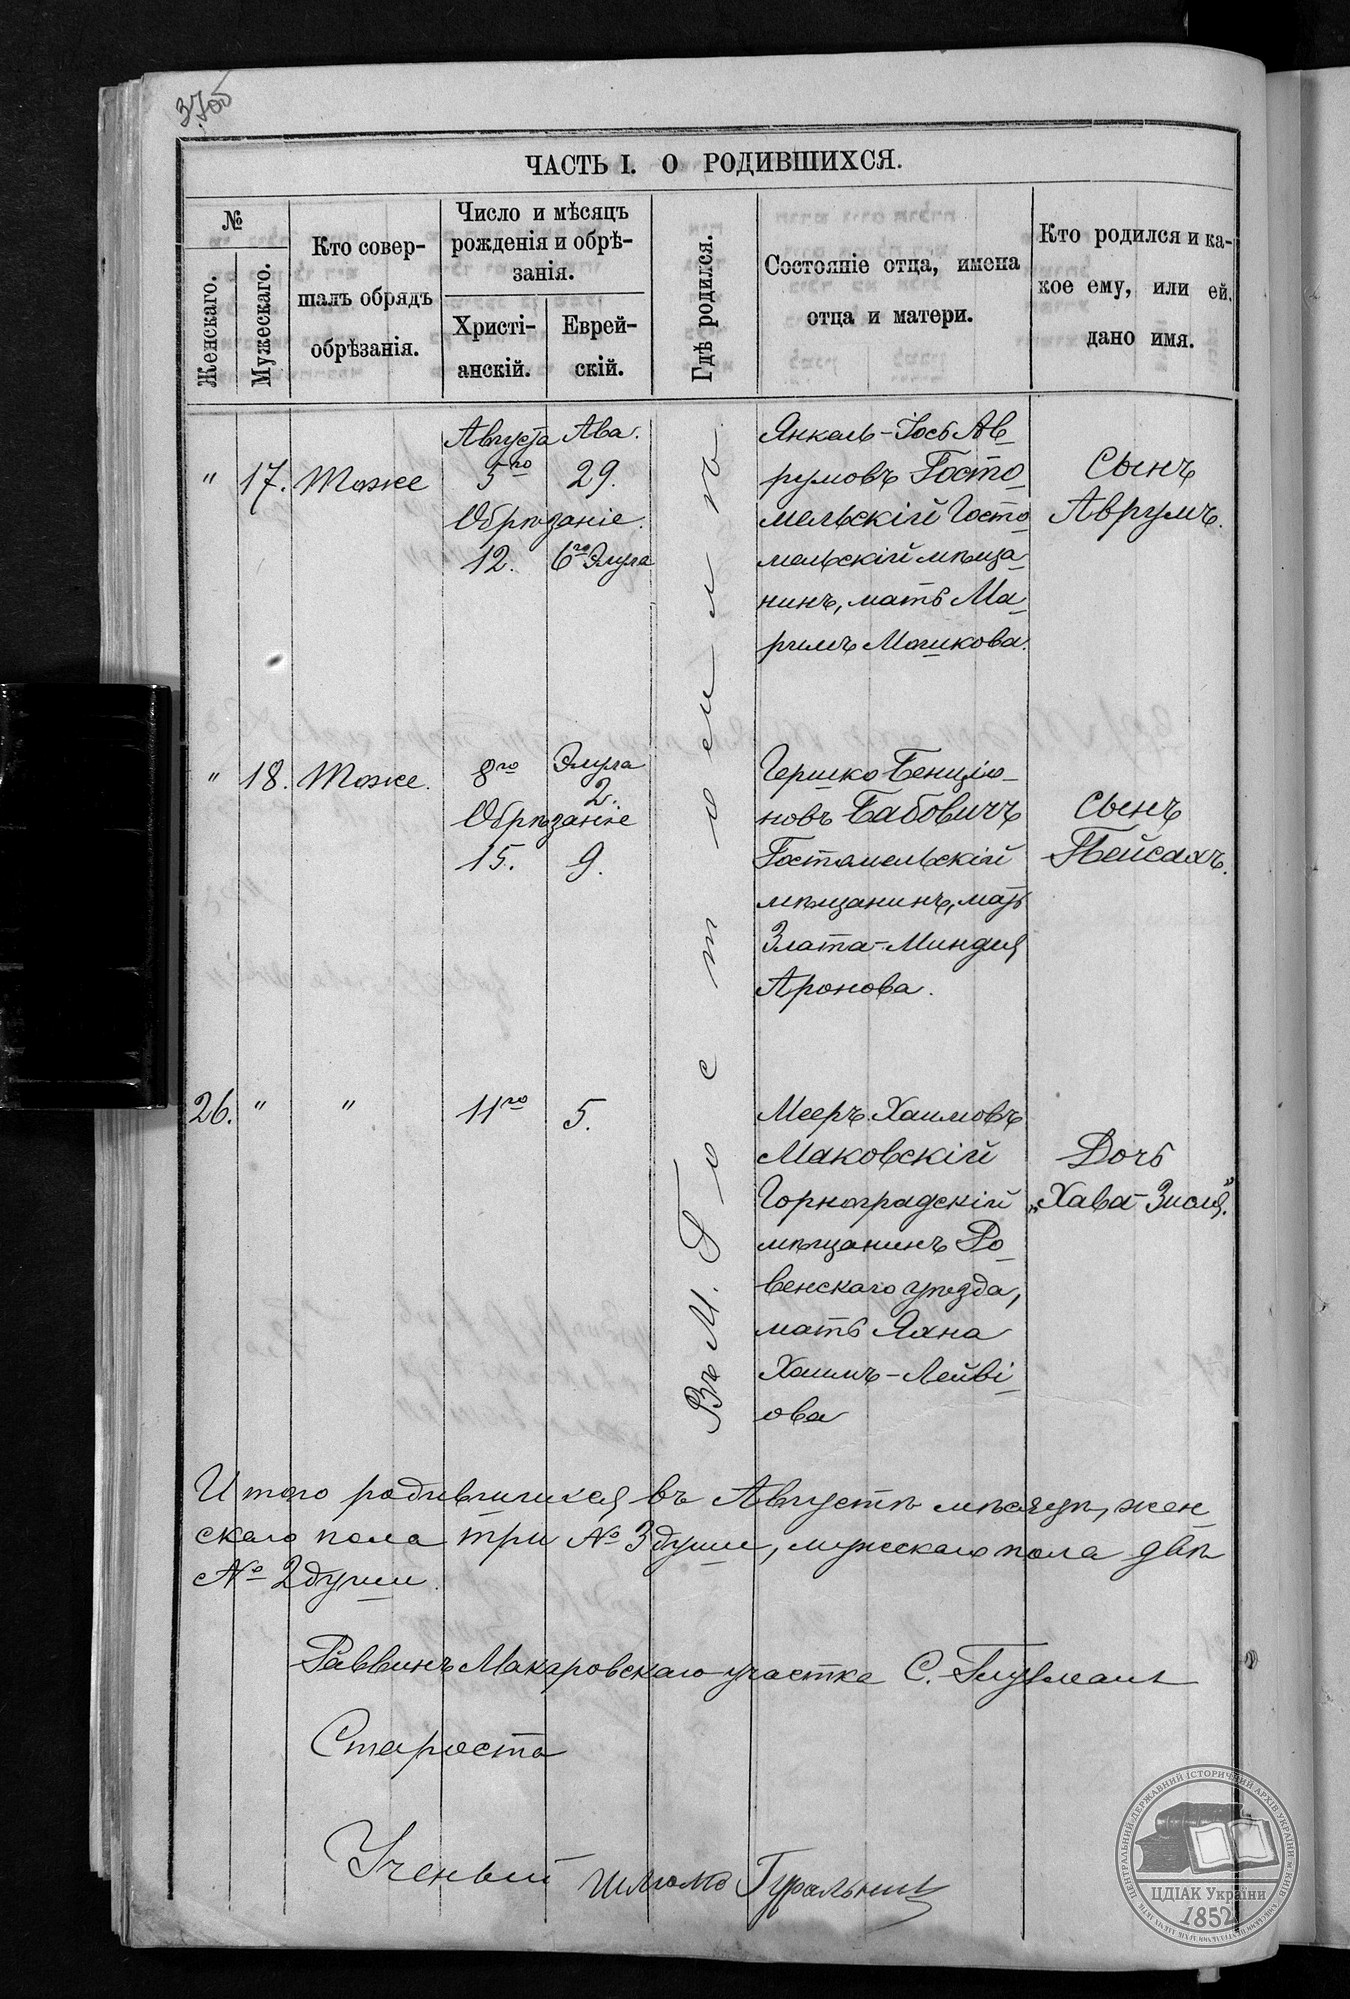 ЧАСТЬ I. О РОДИВШИХСЯ.
№
Женскаго.
Мужескаго.
Кто совер-
шалъ обрядъ
обрѣзанія.
Число и мѣсяцъ
рожденія и обрѣ-
занія.
Христі-
анскій.
Еврей-
скій.
Гдѣ родился.
Состояніе отца, имена
отца и матери.
Кто родился и ка-
кое ему, или ей,
дано имя.
Въ М. Гостомлѣ
Августа Ава.
" 17. Тоже 5го 29.
Обрѣзаніе.
12. 6го Элула
Янкель-Іось Ав-
румовъ Госто-
мельскій Госто-
мельскій мѣща-
нинъ, мать Ма-
римъ Мошкова.
Сынъ
Аврумъ.
" 18. Тоже. 8го Элула
2.
Обрѣзаніе
15. 9.
Гершко Бенціо-
новъ Бабовичъ
Гостомельскій
мѣщанинъ, мать
Злата-Миндля
Аронова.
Сынъ
Пейсахъ.
26. " " 11го 5.
Мееръ Хаимовъ
Маковскій
Горноградскій
мѣщанинъ Ро-
венскаго уѣзда,
мать Яхна
Хаимъ-Лейві-
ова
Дочь
„Хава-Зисля."
Итого родившихся въ Августѣ мѣсяцѣ, жен-
скаго пола три № 3 души, мужескаго пола двѣ
№ 2 души.
Раввинъ Макаровскаго участка С. Глузманъ
Староста
Ученый Шлиомо Гуральник
ЦЕНТРАЛЬНИЙ ДЕРЖАВНИЙ ІСТОРИЧНИЙ АРХІВ УКРАЇНИ м. КИЇВ
ЦДІАК України
1852